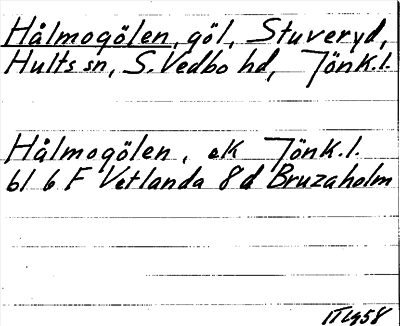 Hålmogölen, göl, Stuveryd,
Hults sn, S. Vedbo hd, Jönk.l.
Hålmogölen, ek Jönk.l.
bl 6 F Vetlanda 8d Bruzaholm
1958